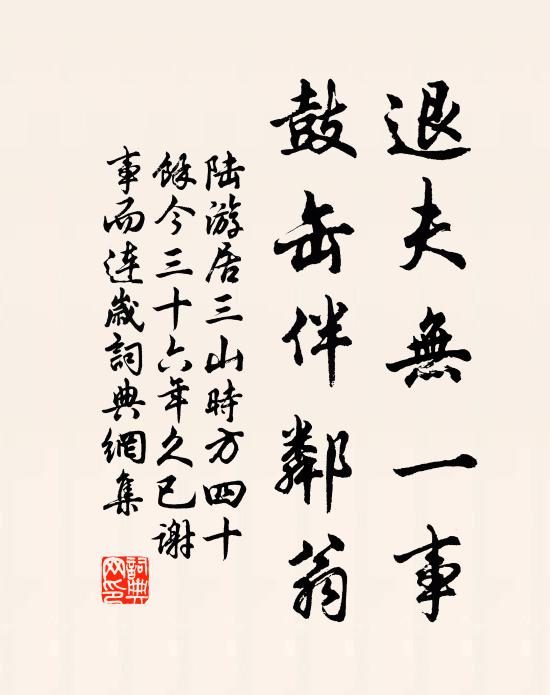 退夫無一事
鼓缶伴鄰翁
陆游居三山時方四十
餘今三十六年久已谢
事而连歲詞典網集
詞典网印